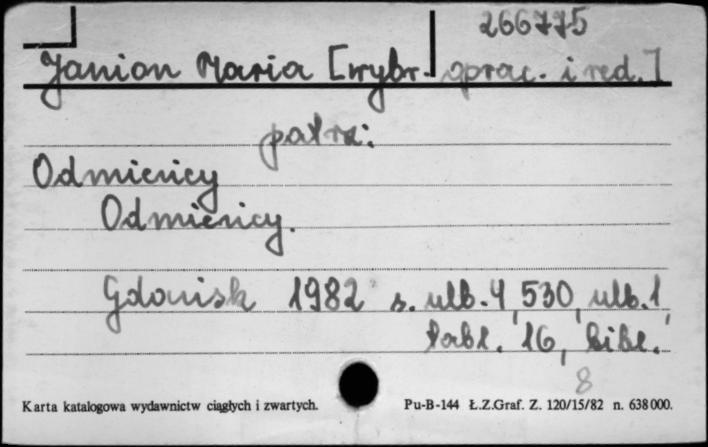 266775
Janion Maria [wybr. oprac. i red.]
patrz:
Odmieńcy
Odmieńcy.
Gdańsk 1982 s. nlb. 4, 530, nlb. 1,
tabl. 16, bibl.
8
Karta katalogowa wydawnictw ciągłych i zwartych. Pu-B-144 Ł.Z.Graf. Z. 120/15/82 n. 638000.